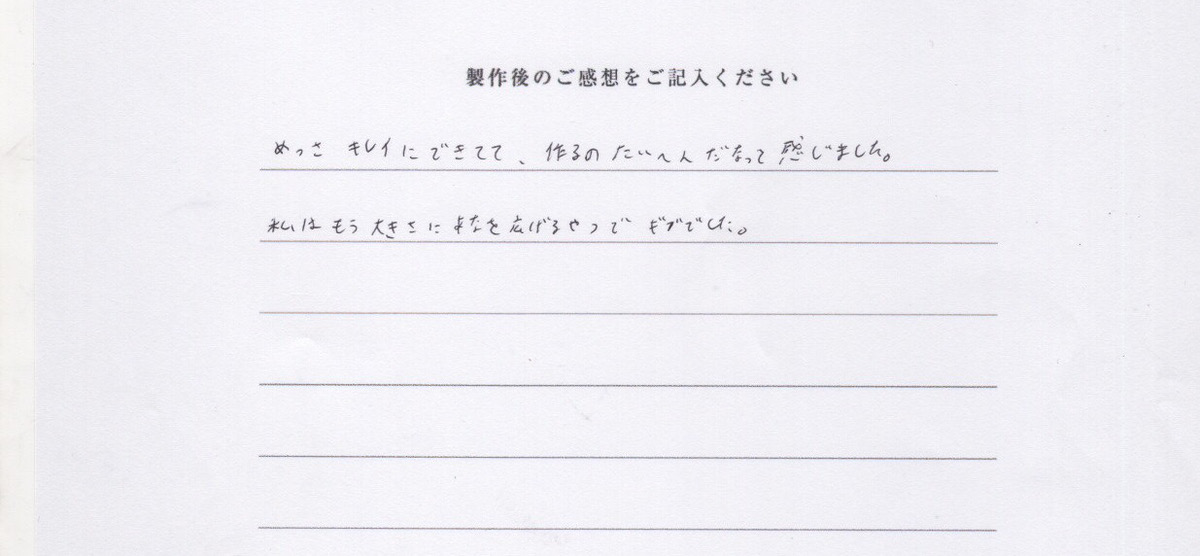 製作後のご感想をご記入ください
めっさ キレイにできてて、作るの たいへんだなって感じました。
私はもう 大きさに を広げるやつで ギブでした。